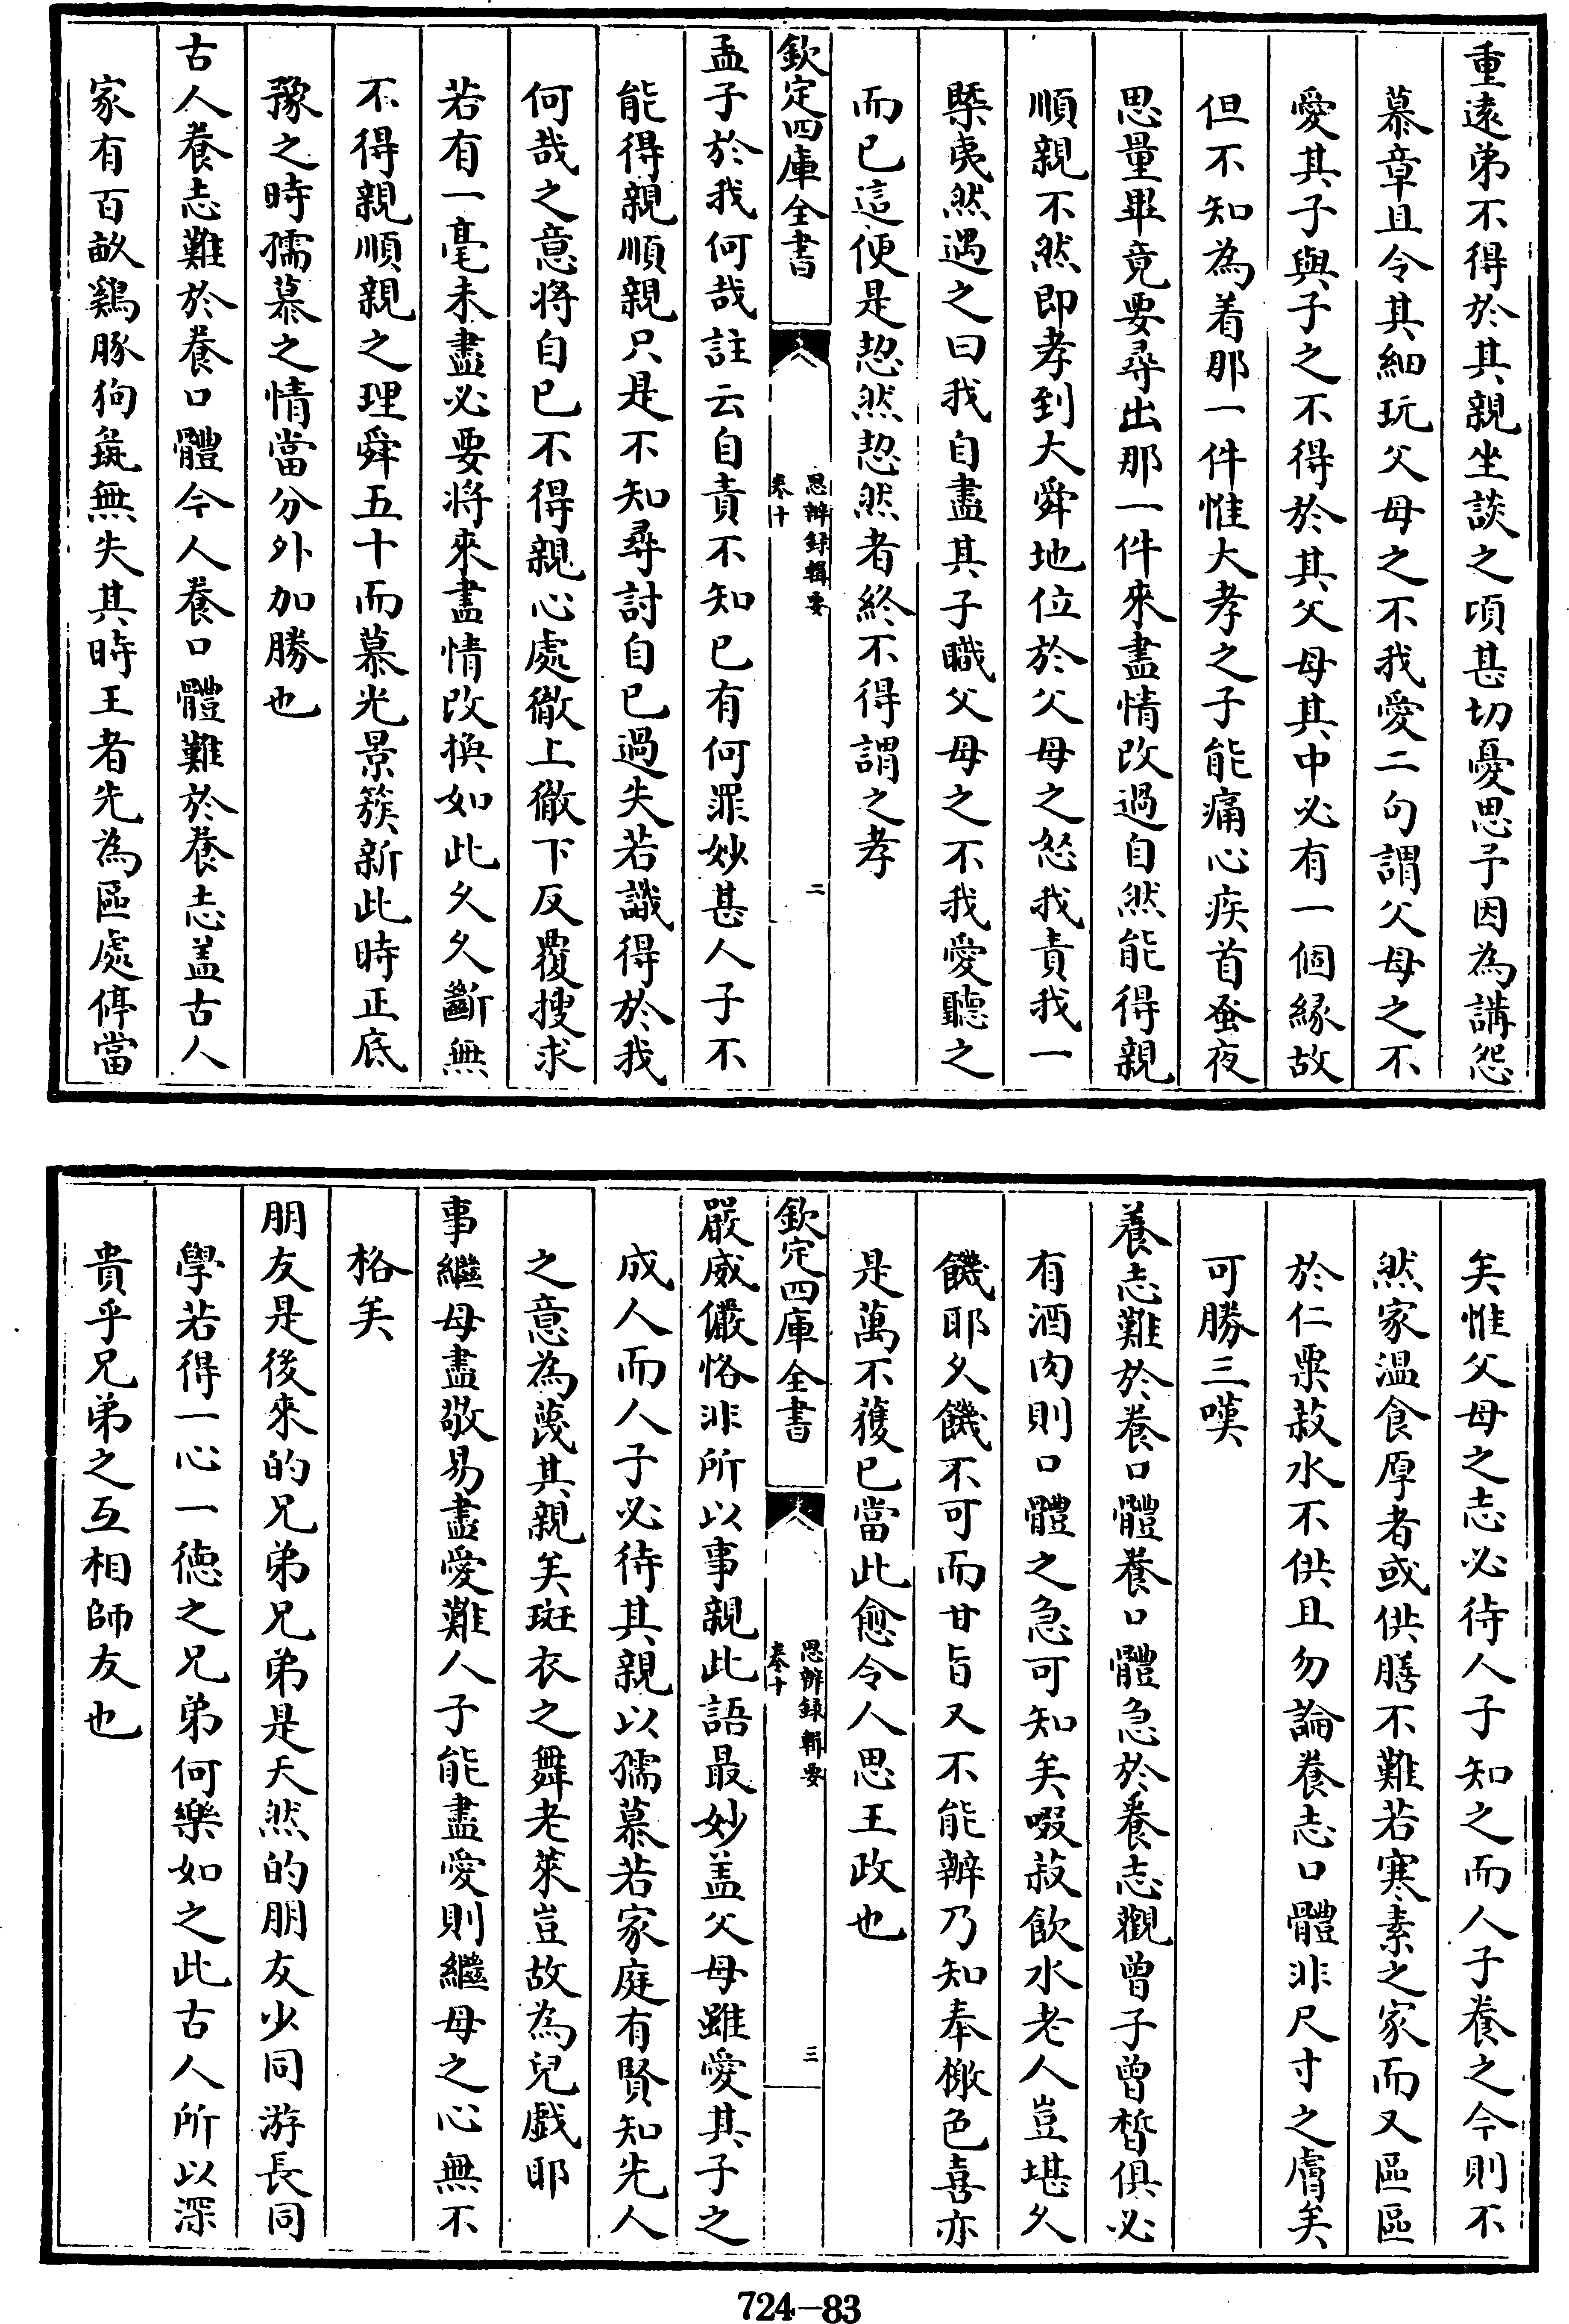 重遠弟不得於其親坐談之頃甚切憂思予因為講怨
慕章且令其細玩父母之不我愛二句謂父母之不
愛其子與子之不得於其父母其中必有一個緣故
但不知為着那一件惟大孝之子能痛心疾首蚤夜
思量畢竟要尋出那一件來盡情改過自然能得親
順親不然即孝到大舜地位於父母之怒我責我一
槩夷然遇之曰我自盡其子職父母之不我愛聽之
而已這便是恝然恝然者終不得謂之孝
欽定四庫全書
思辨録輯要
卷十
二
孟子於我何哉註云自責不知已有何罪妙甚人子不
能得親順親只是不知尋討自已過失若識得於我
何哉之意將自已不得親心處徹上徹下反覆搜求
若有一毫未盡必要將來盡情改換如此久久斷無
不得親順親之理舜五十而慕光景簇新此時正底
豫之時孺慕之情當分外加勝也
古人養志難於養口體今人養口體難於養志盖古人
家有百畝鷄豚狗彘無失其時王者先為區處停當
矣惟父母之志必待人子知之而人子養之今則不
然家温食厚者或供膳不難若寒素之家而又區區
於仁粟菽水不供且勿論養志口體非尺寸之膚矣
可勝三嘆
養志難於養口體養口體急於養志觀曾子曾晳俱必
有酒肉則口體之急可知矣啜菽飲水老人豈堪久
饑耶久饑不可而甘旨又不能辨乃知奉檄色喜亦
是萬不獲已當此愈令人思王政也
欽定四庫全書
思辨録輯要
卷十
三
嚴威儼恪非所以事親此語最妙盖父母雖愛其子之
成人而人子必待其親以孺慕若家庭有賢知先人
之意為蔑其親矣斑衣之舞老萊豈故為兒戲耶
事繼母盡敬易盡愛難人子能盡愛則繼母之心無不
格矣
朋友是後來的兄弟兄弟是天然的朋友少同游長同
學若得一心一德之兄弟何樂如之此古人所以深
貴乎兄弟之互相師友也
724—83